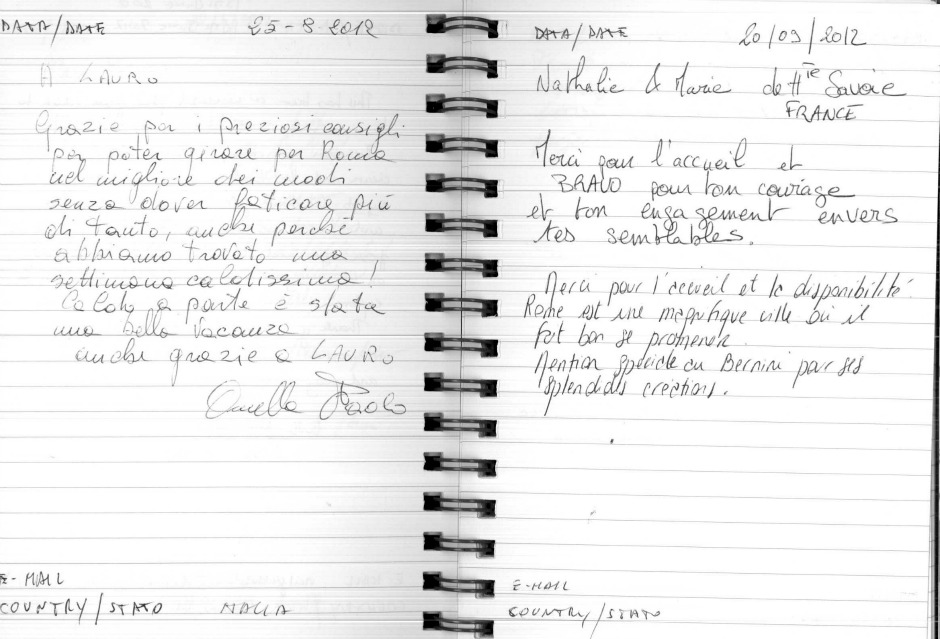 DATA/DATE 25-8-2012
A LAURO
Grazie per i preziosi consigli
per poter girare per Roma
nel migliore dei modi
senza dover faticare più
di tanto, anche perché
abbiamo trovato una
settimana caldissima!
Caldo a parte è stata
una bella vacanza
anche grazie a LAURO
Paolo
E-MAIL
COUNTRY/STATO
DATA/DATE 20/09/2012
Nathalie & Marie de Hte Savoie
FRANCE
Merci pour l'accueil et
BRAVO pour ton courage
et ton engagement envers
tes semblables.
Merci pour l'accueil et la disponibilité.
Rome est une magnifique ville où il
fait bon se promener.
Mention spéciale au Bernini pour ses
splendides créations.
E-MAIL
COUNTRY/STATO